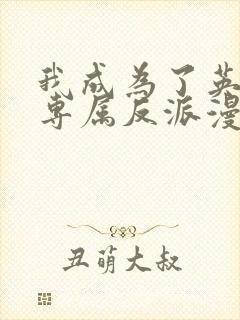 我成为了英
专属反派漫
丑萌大叔